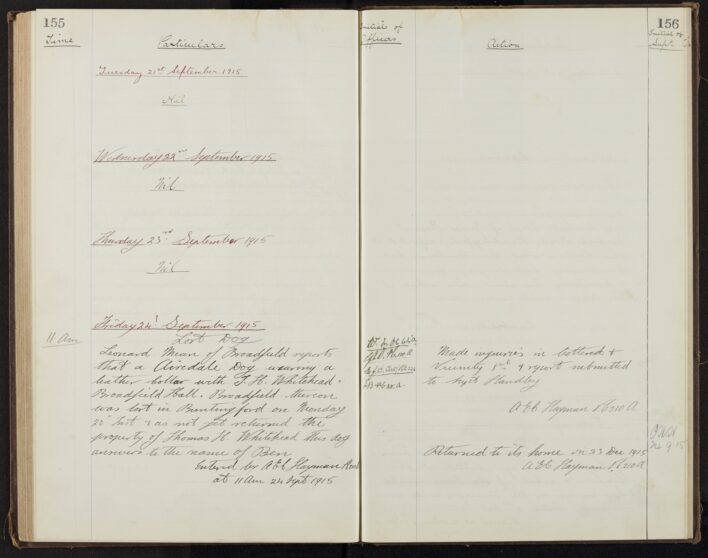 155
Time
Particulars
Tuesday 21st September 1915
Nil
Wednesday 22nd September 1915
Nil
Thursday 23rd September 1915
Nil
Friday 24th September 1915
Lost Dog
11 Am
Leonard Mean of Broadfield reports
that a Airedale Dog wearing a
leather collar with T. H. Whitehead.
Broadfield Hall. Broadfield thereon
was lost in Buntingford on Monday
20 inst & as not yet returned the
property of Thomas H. Whitehead this dog
answers to the name of Ben
Entered by A E C Hayman
at 11 Am 24 Sept 1915
156
Initials of
Officers
Action
Initial of
Supt
Made inquiries in Cottered &
Vicinity & report submitted
to Supt Handley
A E C Hayman
Returned to its home on 23 Dec 1915
A E C Hayman
24 9 15